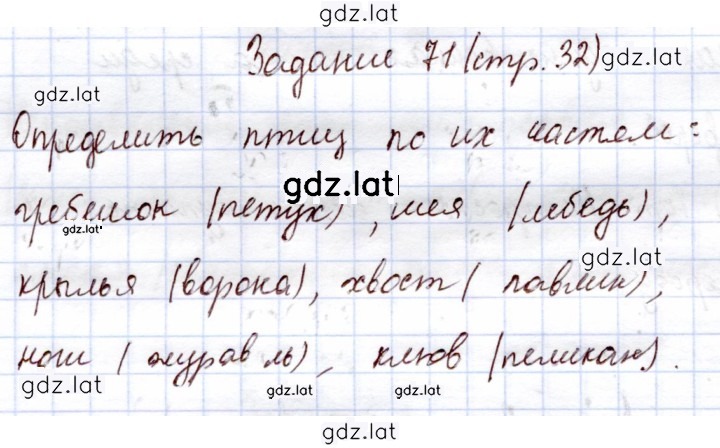 gdz.lat
Задание 71 (стр. 32)
gdz.lat
gdz.lat
Определить птиц по их частям:
gdz.lat
гребешок (петух), шея (лебедь),
gdz.lat
gdz.lat
крылья (ворона), хвост (павлин),
ноги (журавль), клюв (пеликан).
gdz.lat
gdz.lat
gdz.lat
gdz.lat